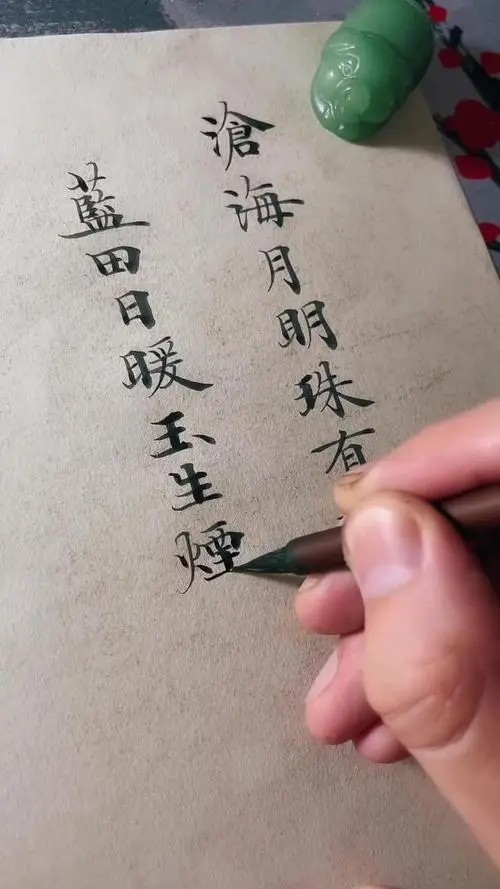 滄海月明珠有
藍田日暖玉生煙